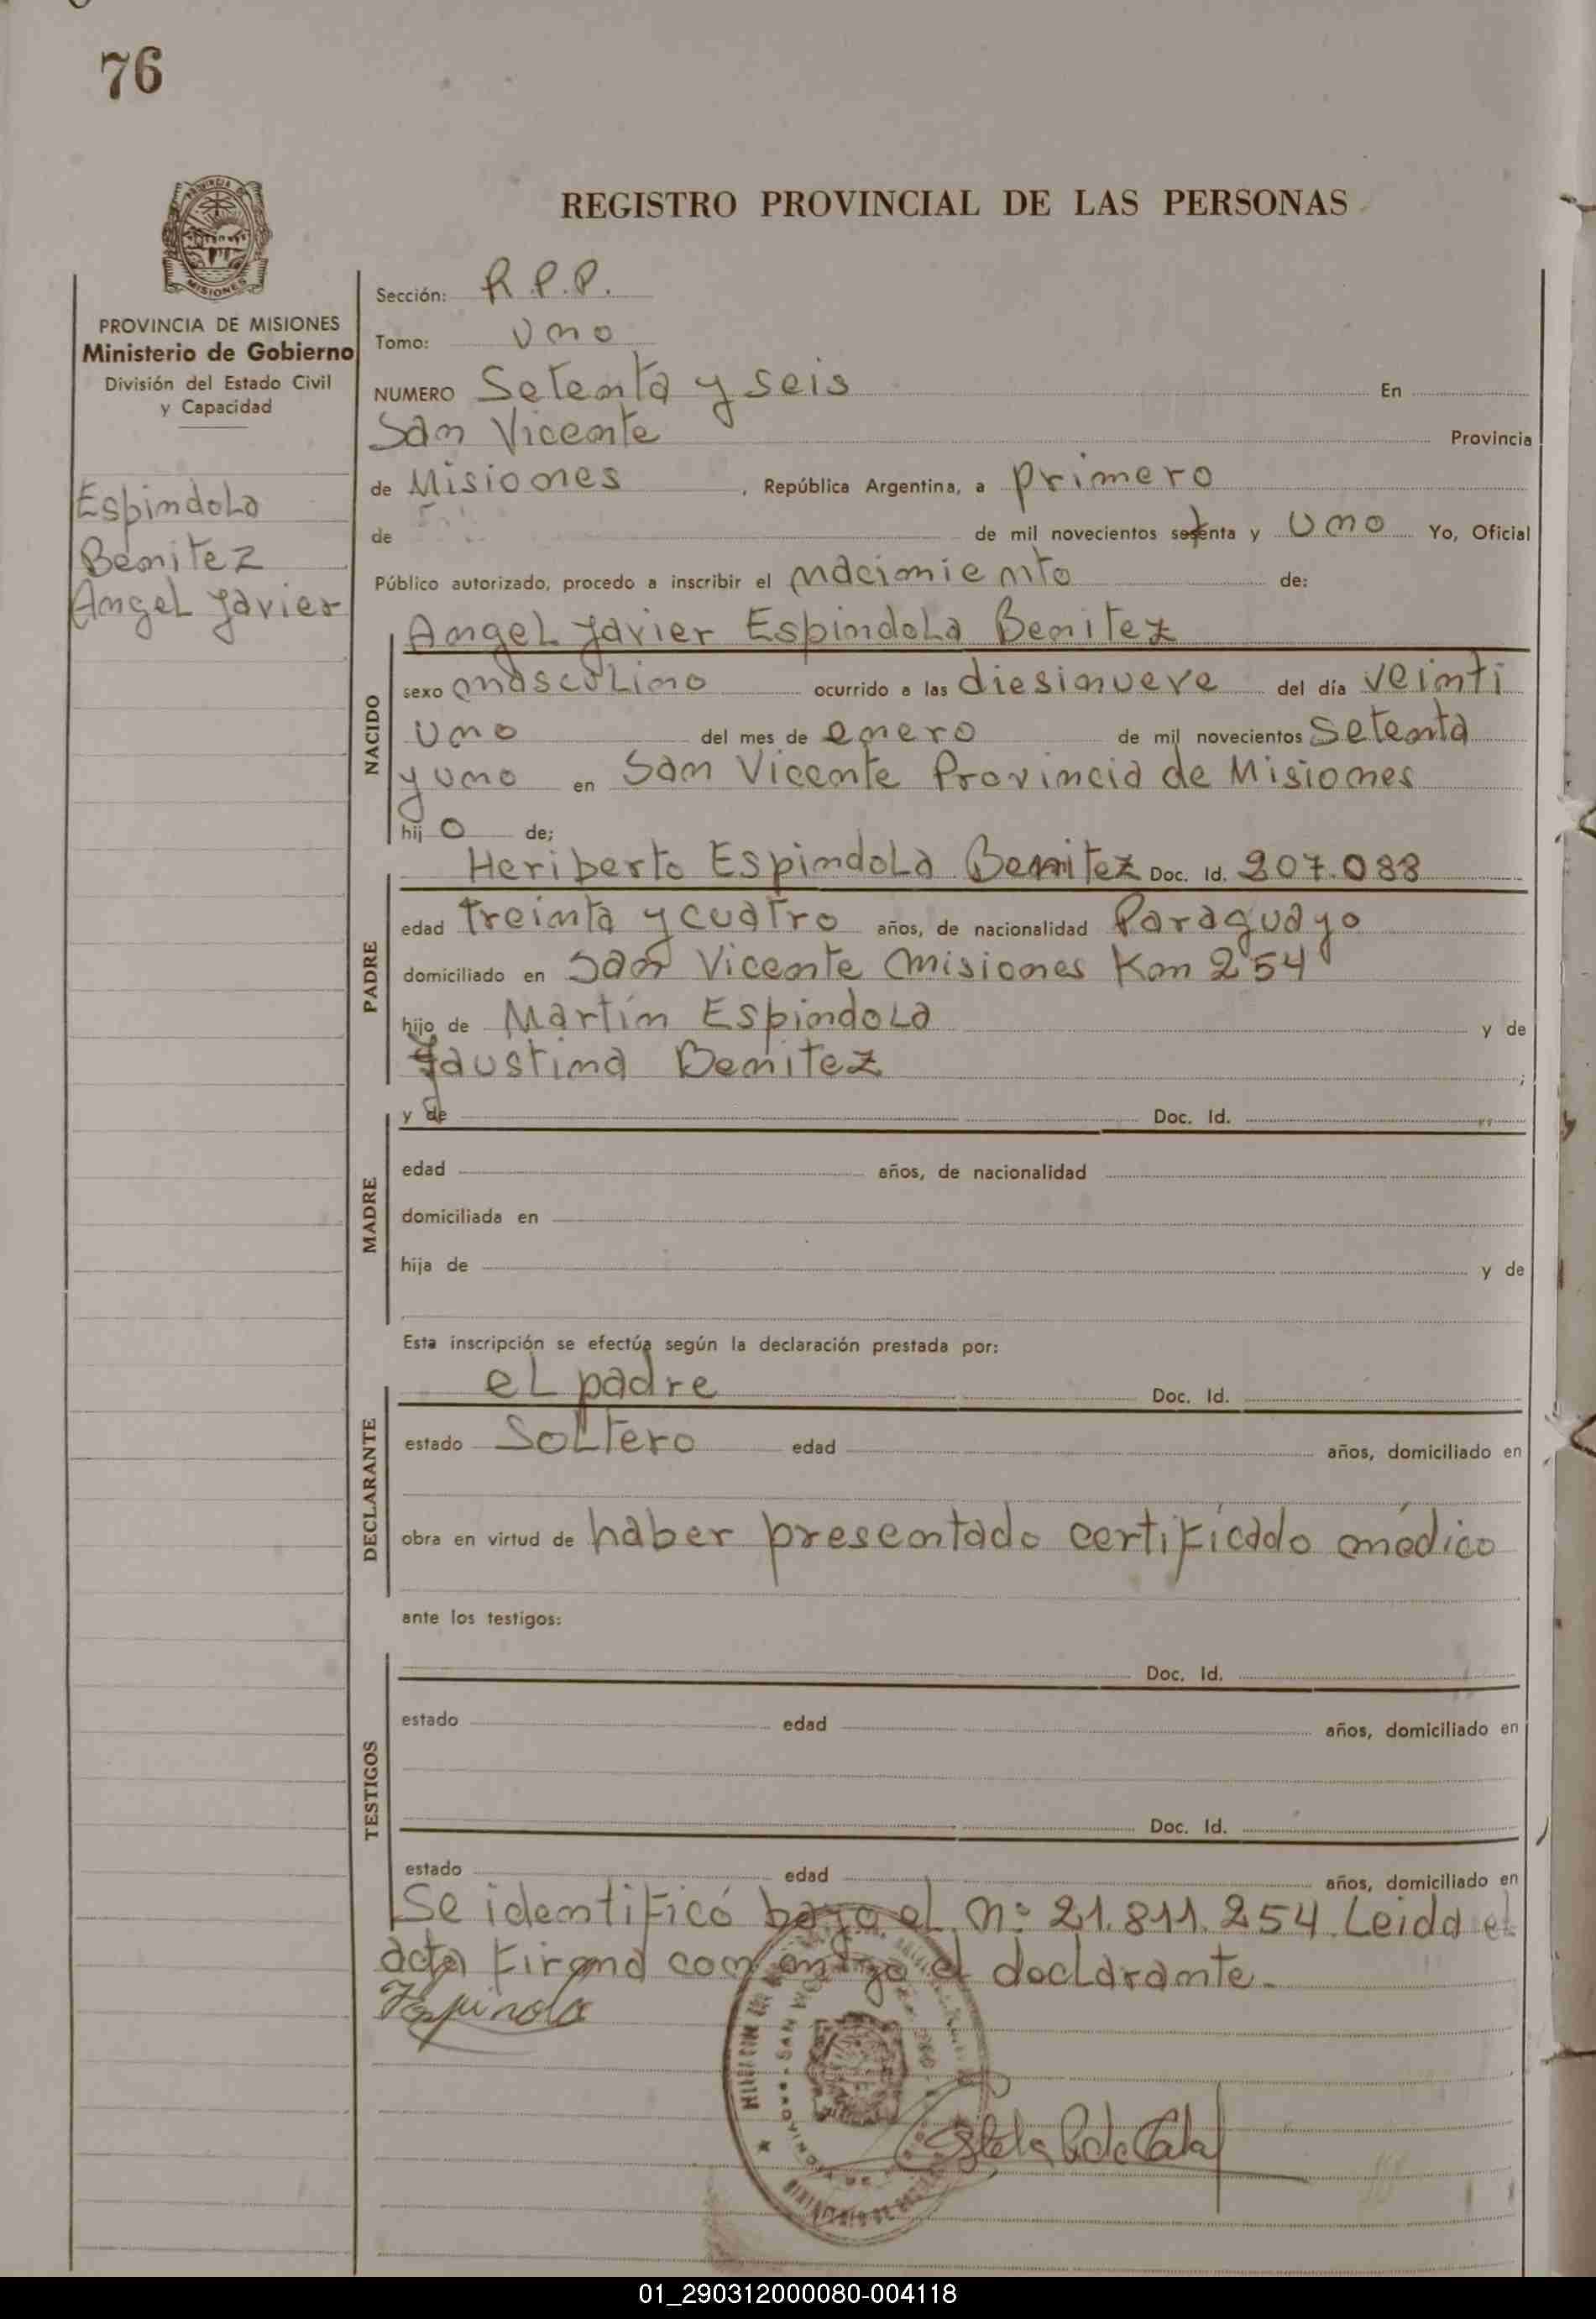 76
REGISTRO PROVINCIAL DE LAS PERSONAS
MISIONES
PROVINCIA DE MISIONES
Ministerio de Gobierno
División del Estado Civil
y Capacidad
Espindola
Benitez
Angel Javier
Sección: R.P.P.
Tomo: Uno
NUMERO Setenta y seis En
San Vicente Provincia
de Misiones, República Argentina, a primero
de de mil novecientos setenta y Uno Yo, Oficial
Público autorizado, procedo a inscribir el nacimiento de:
Angel Javier Espindola Benitez
NACIDO
sexo masculino ocurrido a las diesinueve del día veinti
uno del mes de enero de mil novecientos setenta
y uno en San Vicente Provincia de Misiones
hijo de;
Heriberto Espindola Benitez Doc. Id. 207.088
PADRE
edad treinta y cuatro años, de nacionalidad Paraguayo
domiciliado en San Vicente Misiones Km 254
hijo de Martín Espindola y de
Faustina Benitez ;
MADRE
y de Doc. Id.
edad años, de nacionalidad
domiciliada en
hija de y de
Esta inscripción se efectúa según la declaración prestada por:
DECLARANTE
el padre Doc. Id.
estado Soltero edad años, domiciliado en
obra en virtud de haber presentado certificado médico
ante los testigos:
TESTIGOS
Doc. Id.
estado edad años, domiciliado en
Doc. Id.
estado edad años, domiciliado en
Se identificó bajo el n: 21.811.254. Leida el
acta firma con migo el declarante.
Espinola
01_290312000080-004118